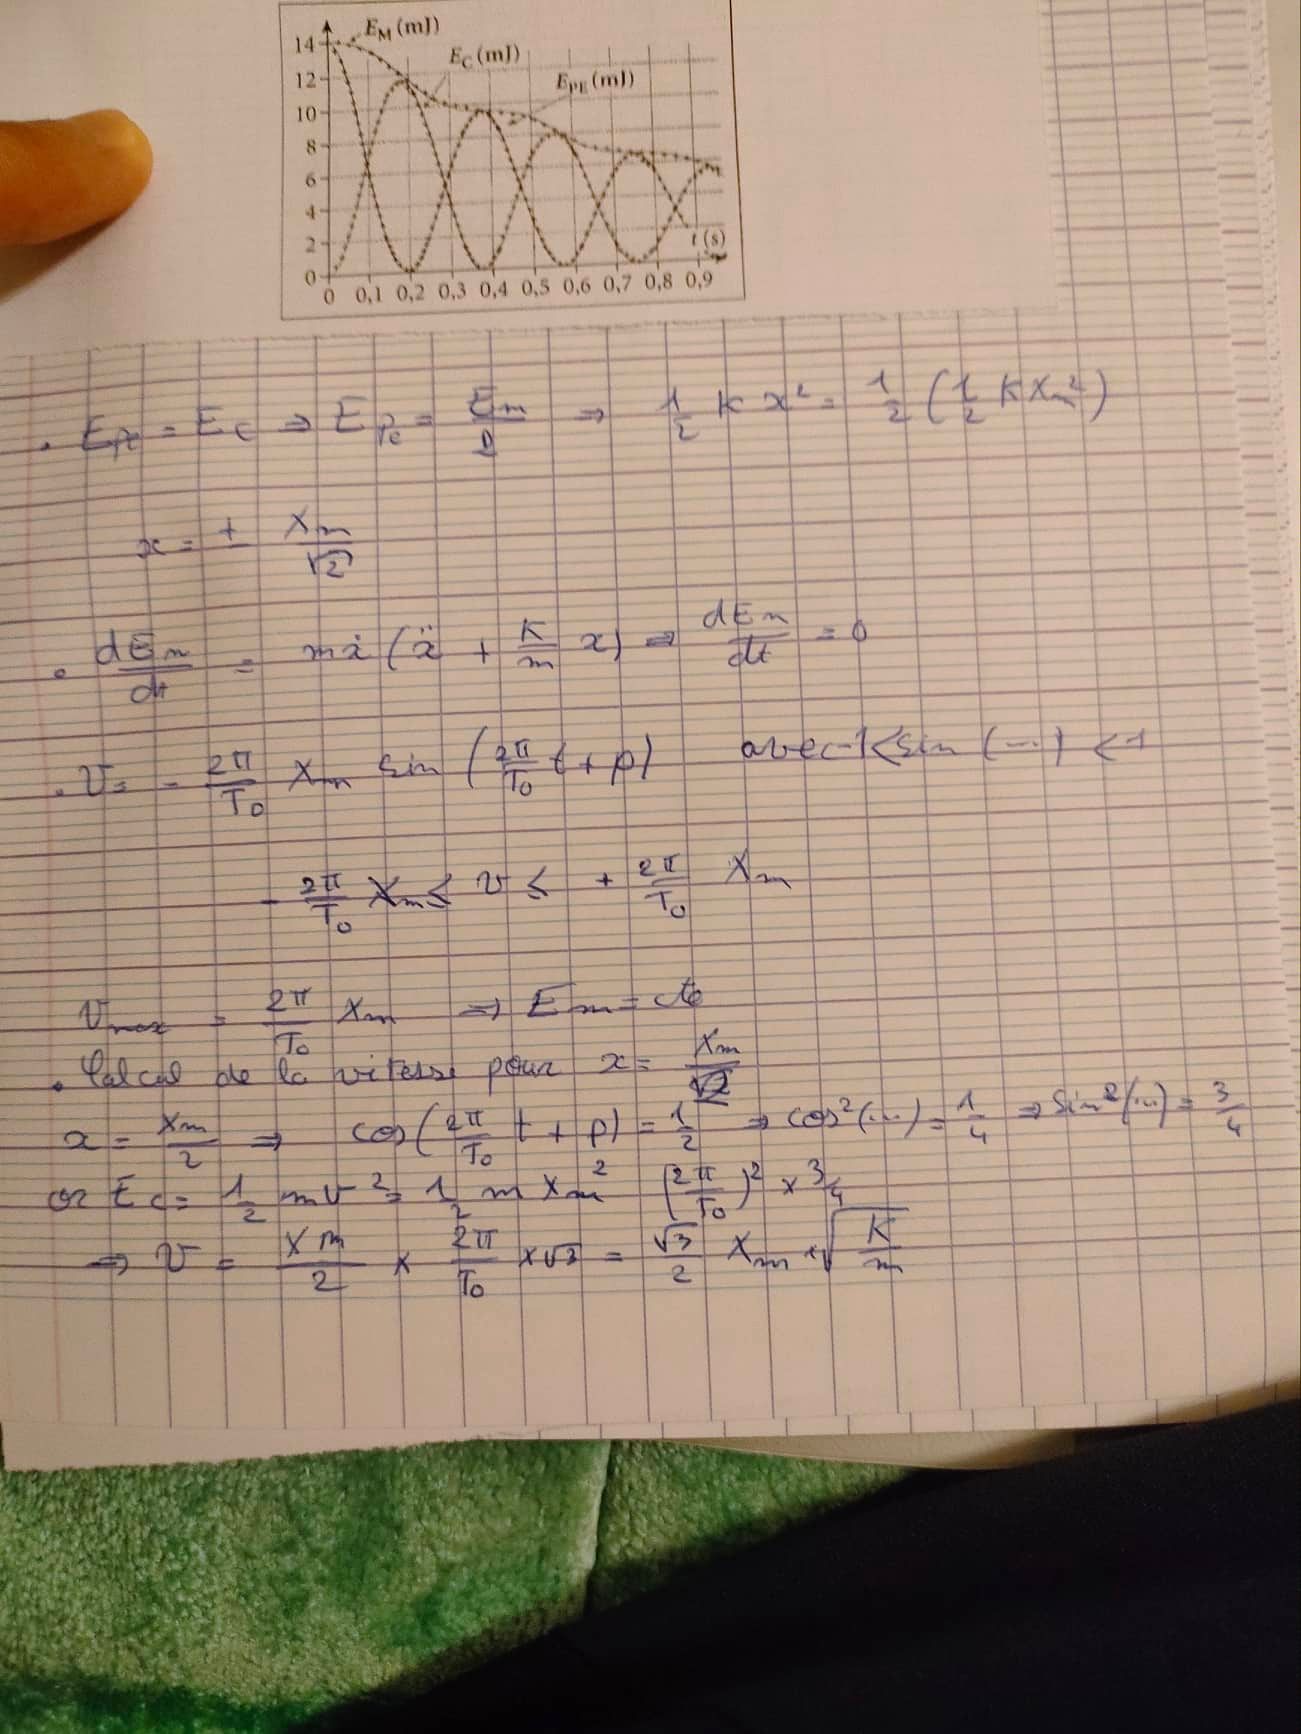 E_M (mJ)
E_C (mJ)
E_PE (mJ)
14
12
10
8
6
4
2
0
t (s)
0 0,1 0,2 0,3 0,4 0,5 0,6 0,7 0,8 0,9
. E_Pe = E_c ⇒ E_Pe = E_m/2 ⇒ 1/2 K x² = 1/2 (1/2 K X_m²)
x = ± X_m/√2
. dE_m/dt = mẋ (ẍ + K/m x) ⇒ dE_m/dt = 0
. V = - 2π/T₀ X_m sin (2π/T₀ t + φ) avec -1 < sin (...) < 1
- 2π/T₀ X_m ≤ v ≤ + 2π/T₀ X_m
V_max = 2π/T₀ X_m ⇒ E_m = cte
. Calcul de la vitesse pour x = X_m/2
x = X_m/2 ⇒ cos(2π/T₀ t + φ) = 1/2 ⇒ cos²(...) = 1/4 ⇒ sin²(...) = 3/4
or E_c = 1/2 mv² = 1/2 m X_m² (2π/T₀)² × 3/4
⇒ V = X_m/2 × 2π/T₀ × √3 = √3/2 X_m × √(K/m)